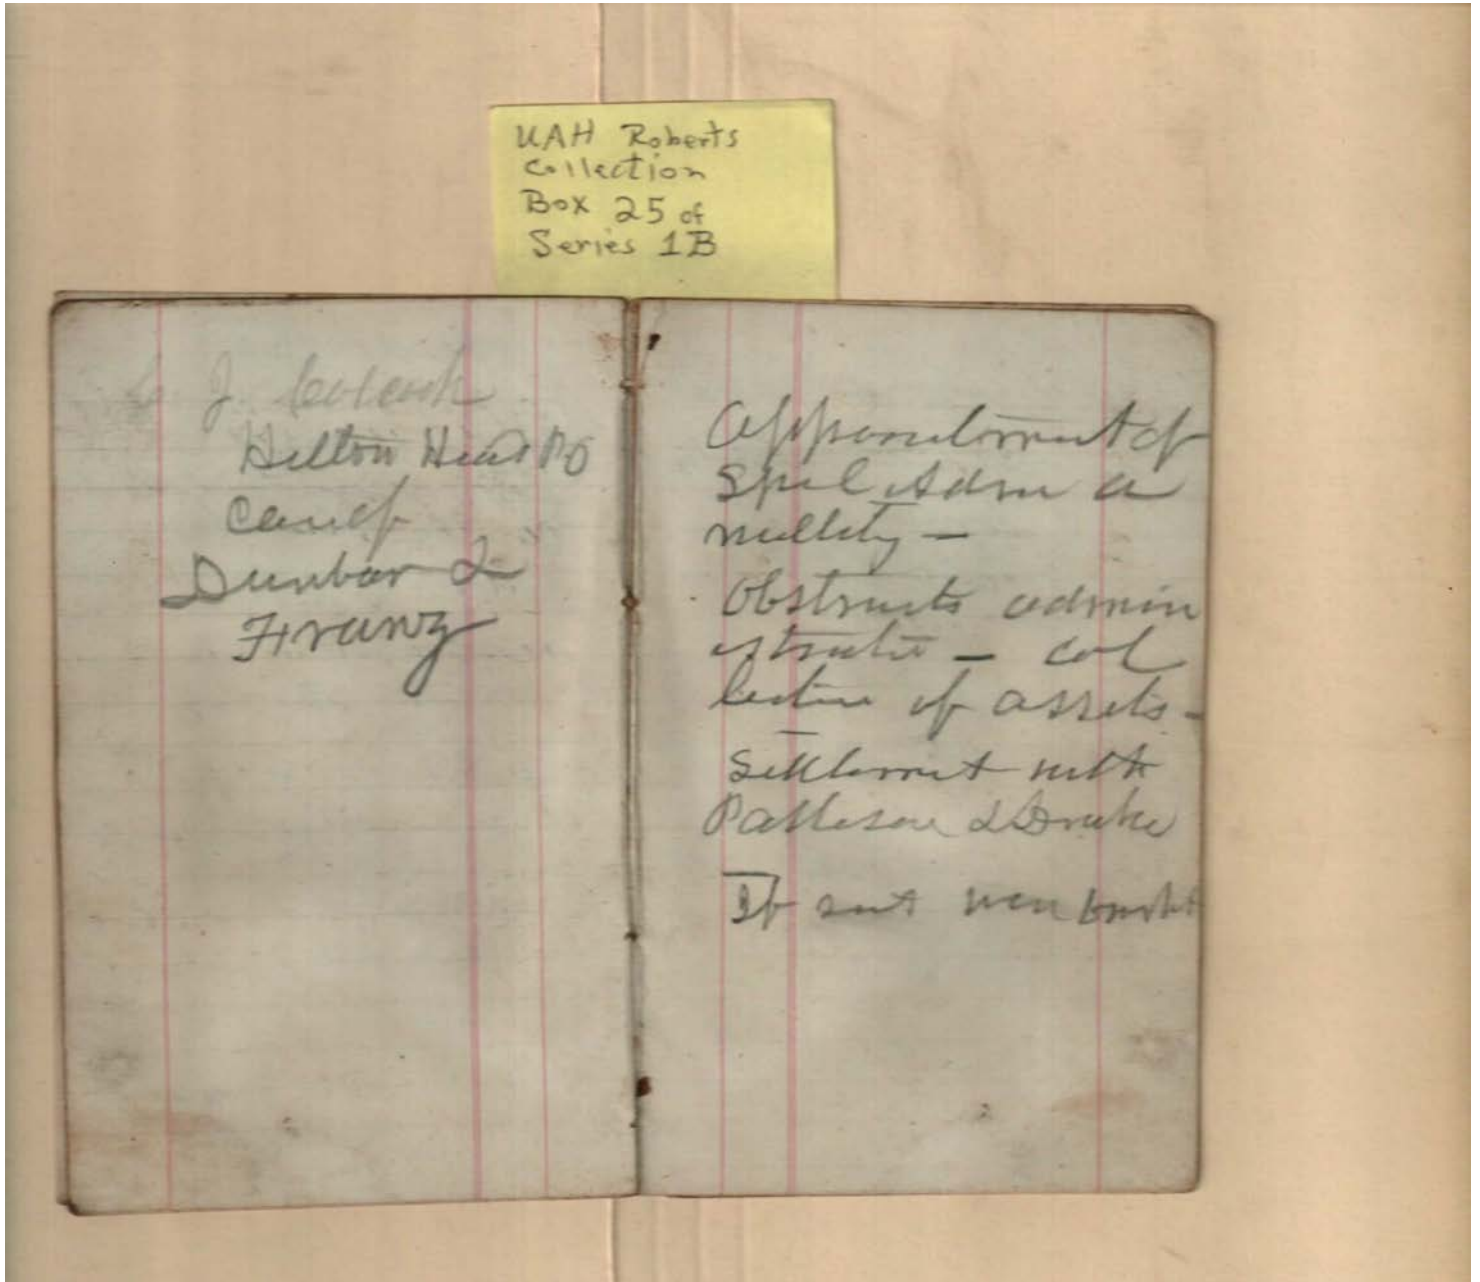 UAH Roberts
Collection
Box 25 of
Series 1B
J. Colcock
Hilton Head PO
Care of
Dunbar &
Franz
Appointment of
Spcl Admr a
nullity –
Obstructs admin
istratio – col
lection of assets –
Settlement with
Patteson & Drake
If suit were